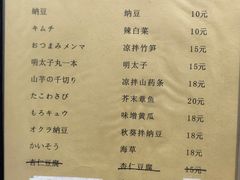 納豆 納豆 10元
キムチ 辣白菜 10元
おつまみメンマ 凉拌竹笋 15元
明太子丸一本 明太子 15元
山芋の千切り 凉拌山药条 18元
たこわさび 芥末章鱼 20元
もろキュウ 味增黄瓜 18元
オクラ納豆 秋葵拌納豆 18元
かいそう 海草 18元
杏仁豆腐 杏仁豆腐 15元